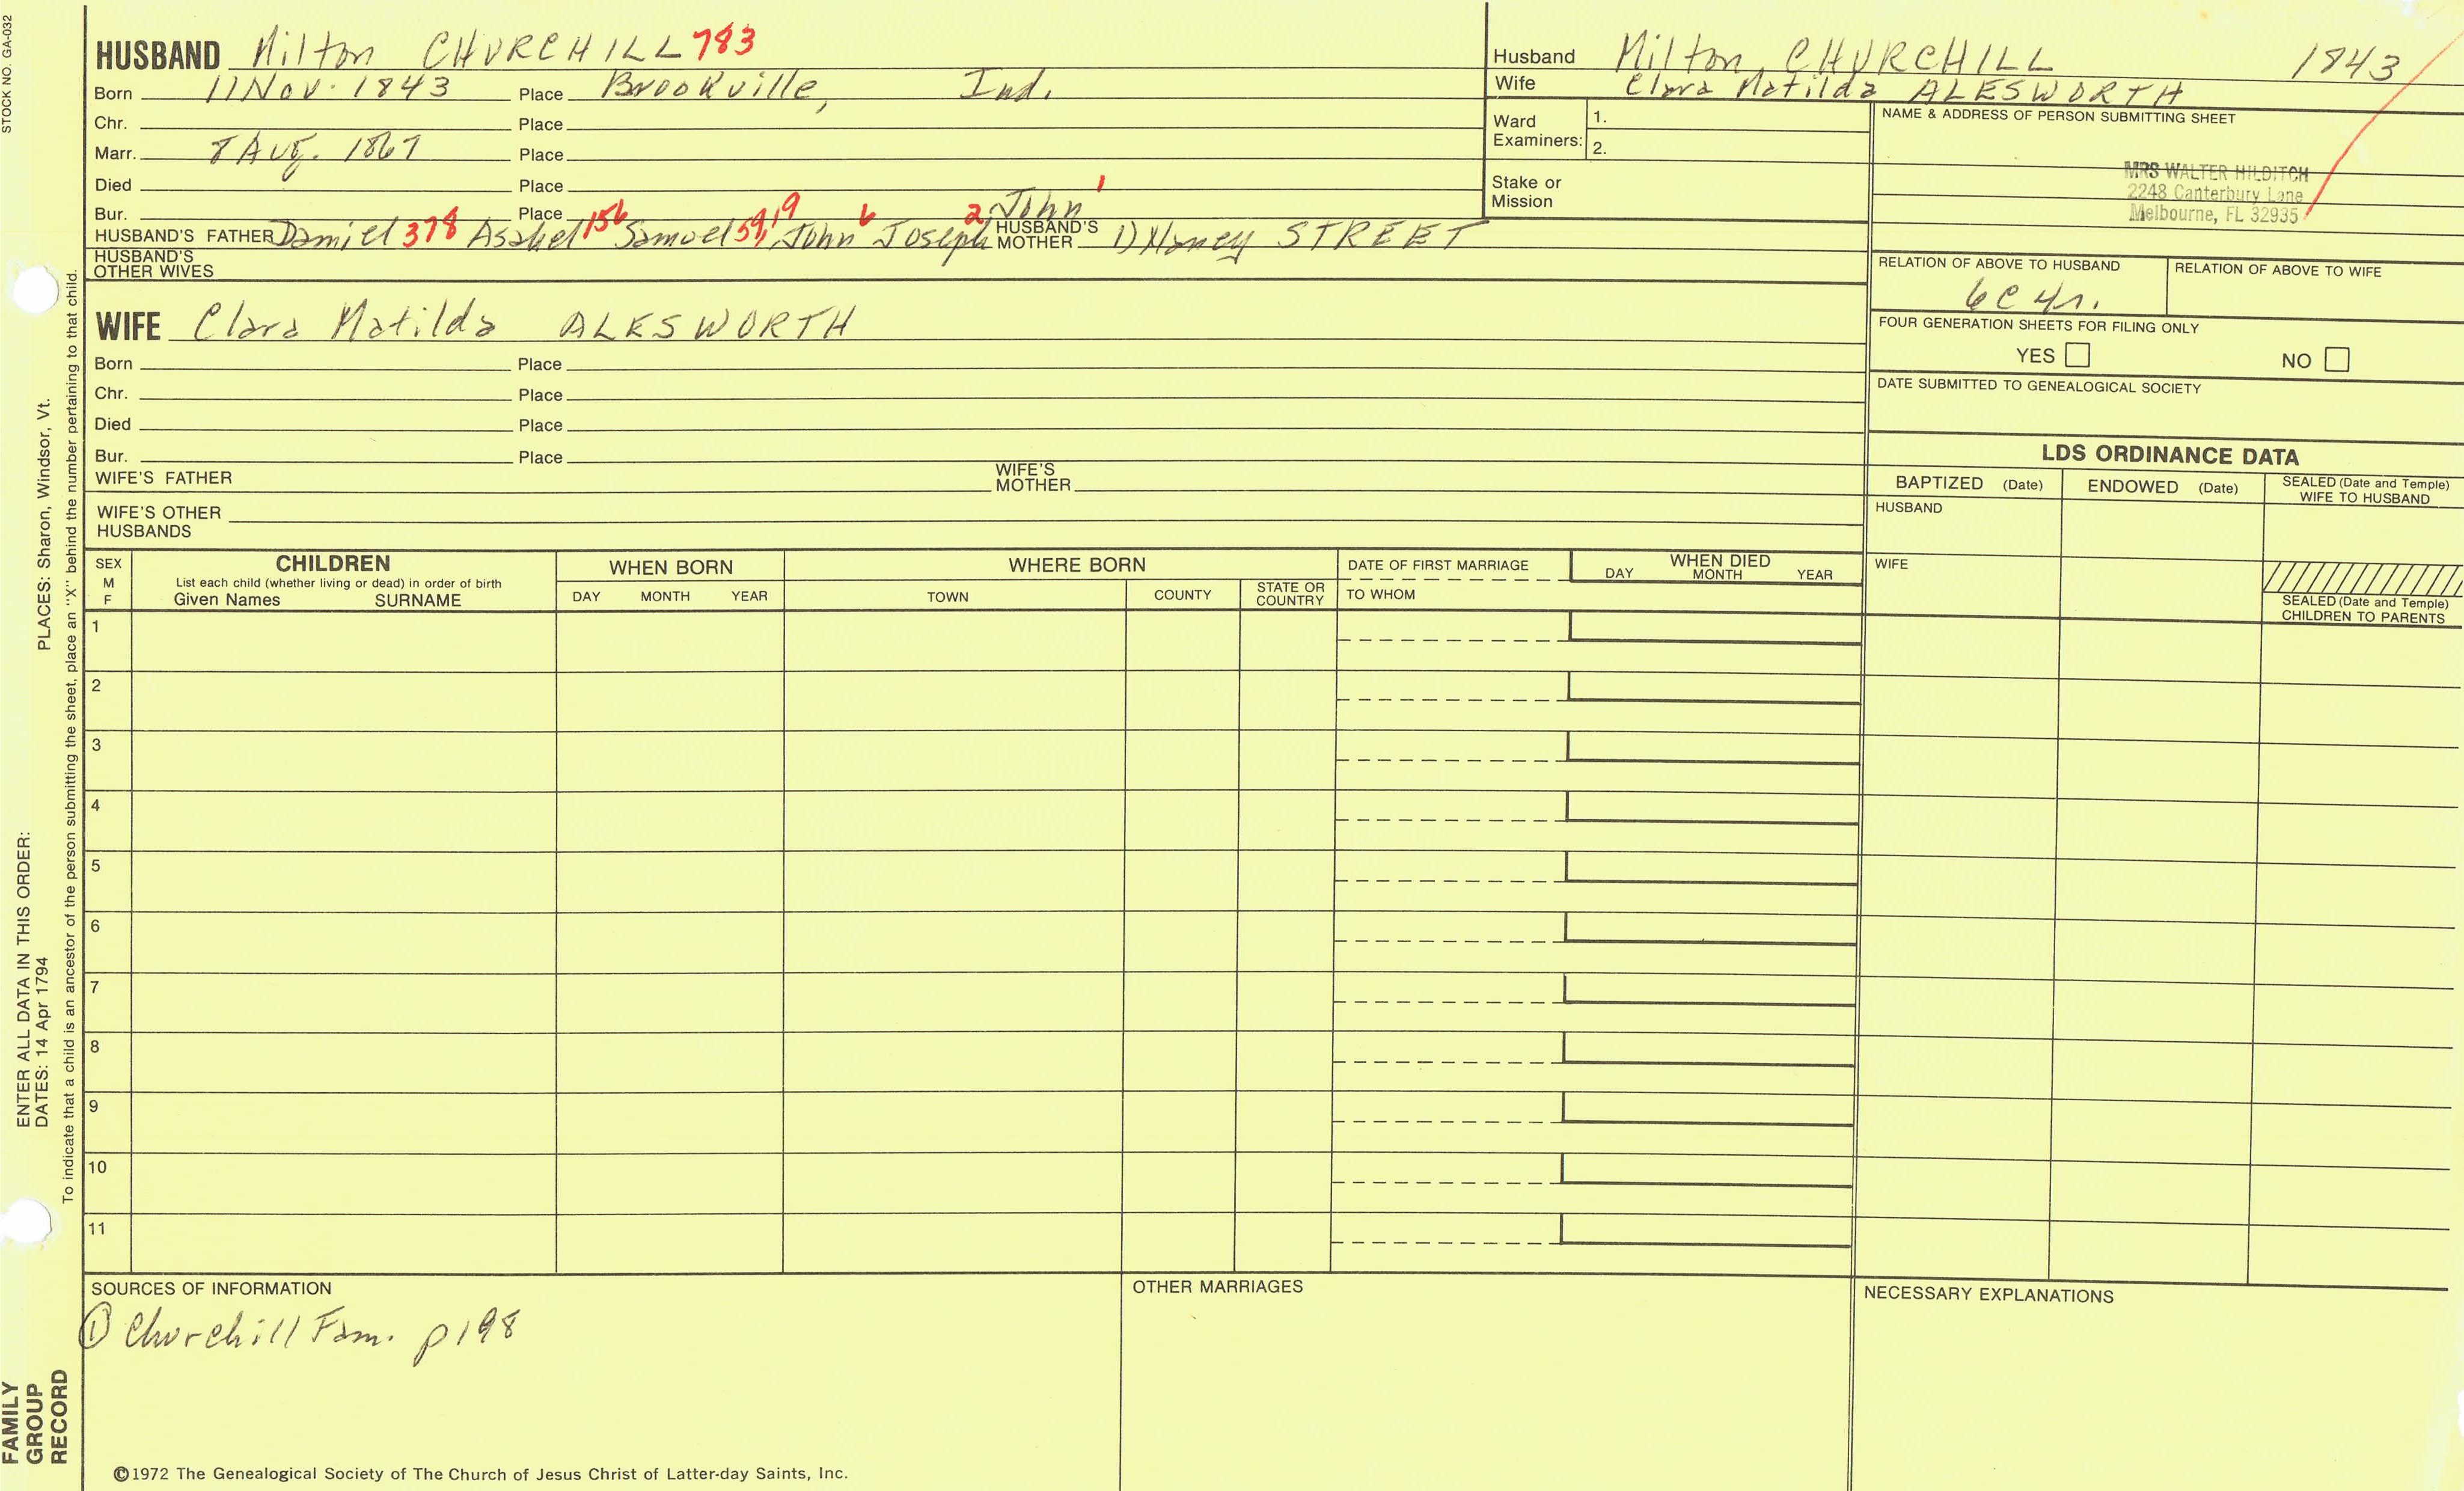 STOCK NO. GA-032
HUSBAND Milton CHURCHILL 783
Born 11 Nov. 1843 Place Brookville, Ind.
Chr. Place
Marr. 8 Aug. 1867 Place
Died Place
Bur. Place
HUSBAND'S FATHER Daniel 378 Asahel 156 Samuel 59, 19 John 6 Joseph 2, John 1 HUSBAND'S MOTHER 1) STREET
HUSBAND'S OTHER WIVES
WIFE Clara Matilda ALESWORTH
Born Place
Chr. Place
Died Place
Bur. Place
WIFE'S FATHER WIFE'S MOTHER
WIFE'S OTHER HUSBANDS
Husband Milton CHURCHILL 1843
Wife Clara Matilda ALESWORTH
Ward Examiners: 1.
2.
Stake or Mission
NAME & ADDRESS OF PERSON SUBMITTING SHEET
MRS WALTER HILDITCH
2248 Canterbury Lane
Melbourne, FL 32935
RELATION OF ABOVE TO HUSBAND RELATION OF ABOVE TO WIFE
6C 4r.
FOUR GENERATION SHEETS FOR FILING ONLY
YES NO
DATE SUBMITTED TO GENEALOGICAL SOCIETY
LDS ORDINANCE DATA
BAPTIZED (Date) ENDOWED (Date) SEALED (Date and Temple) WIFE TO HUSBAND
HUSBAND
WIFE
SEALED (Date and Temple) CHILDREN TO PARENTS
SEX M F
CHILDREN
List each child (whether living or dead) in order of birth
Given Names SURNAME
WHEN BORN
DAY MONTH YEAR
WHERE BORN
TOWN COUNTY STATE OR COUNTRY
DATE OF FIRST MARRIAGE
TO WHOM
WHEN DIED
DAY MONTH YEAR
1
2
3
4
5
6
7
8
9
10
11
SOURCES OF INFORMATION
① Churchill Fam. p198
OTHER MARRIAGES
NECESSARY EXPLANATIONS
©1972 The Genealogical Society of The Church of Jesus Christ of Latter-day Saints, Inc.
FAMILY GROUP RECORD
ENTER ALL DATA IN THIS ORDER:
DATES: 14 Apr 1794 PLACES: Sharon, Windsor, Vt.
To indicate that a child is an ancestor of the person submitting the sheet, place an "X" behind the number pertaining to that child.